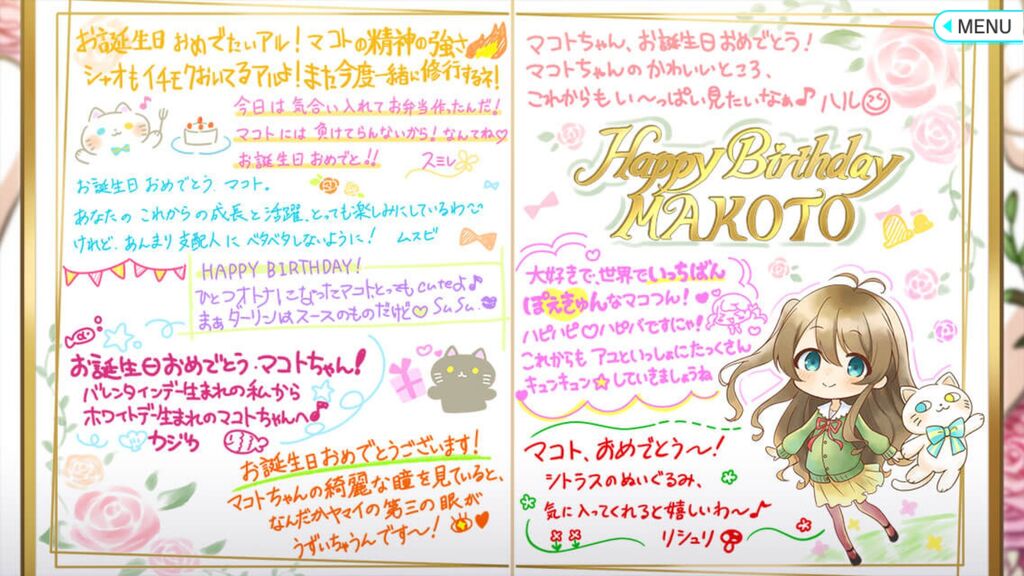 お誕生日おめでたいアル！マコトの精神の強さ
シャオもイチモクおいてるアルよ！また今度一緒に修行するネ！
今日は気合い入れてお弁当作ったんだ！
マコトには負けてらんないから！なんてね♡
お誕生日おめでと！！ スミレ
お誕生日おめでとう、マコト。
あなたのこれからの成長と活躍、とっても楽しみにしているわ
けれど、あんまり支配人にベタベタしないように！ ムスビ
HAPPY BIRTHDAY!
ひとつオトナになったマコト、とってもcuteよ♪
まぁダーリンはスースのものだけど♡ SuSu.
お誕生日おめでとう、マコトちゃん！
バレンタインデー生まれの私から
ホワイトデー生まれのマコトちゃんへ♪
カジカ
お誕生日おめでとうございます！
マコトちゃんの綺麗な瞳を見ていると、
なんだかヤマイの第三の眼が
うずいちゃうんです〜！
MENU
マコトちゃん、お誕生日おめでとう！
マコトちゃんのかわいいところ、
これからもい〜っぱい見たいなぁ♪ハル
Happy Birthday
MAKOTO
大好きで、世界でいっちばん
ぽえきゅんなマコつん！♥
ハピハピ♡ハピバですにゃ！
これからもアコといっしょにたっくさん
キュンキュン★していきましょうね
マコト、おめでとう〜！
シトラスのぬいぐるみ、
気に入ってくれると嬉しいわ〜♪
リシュリ